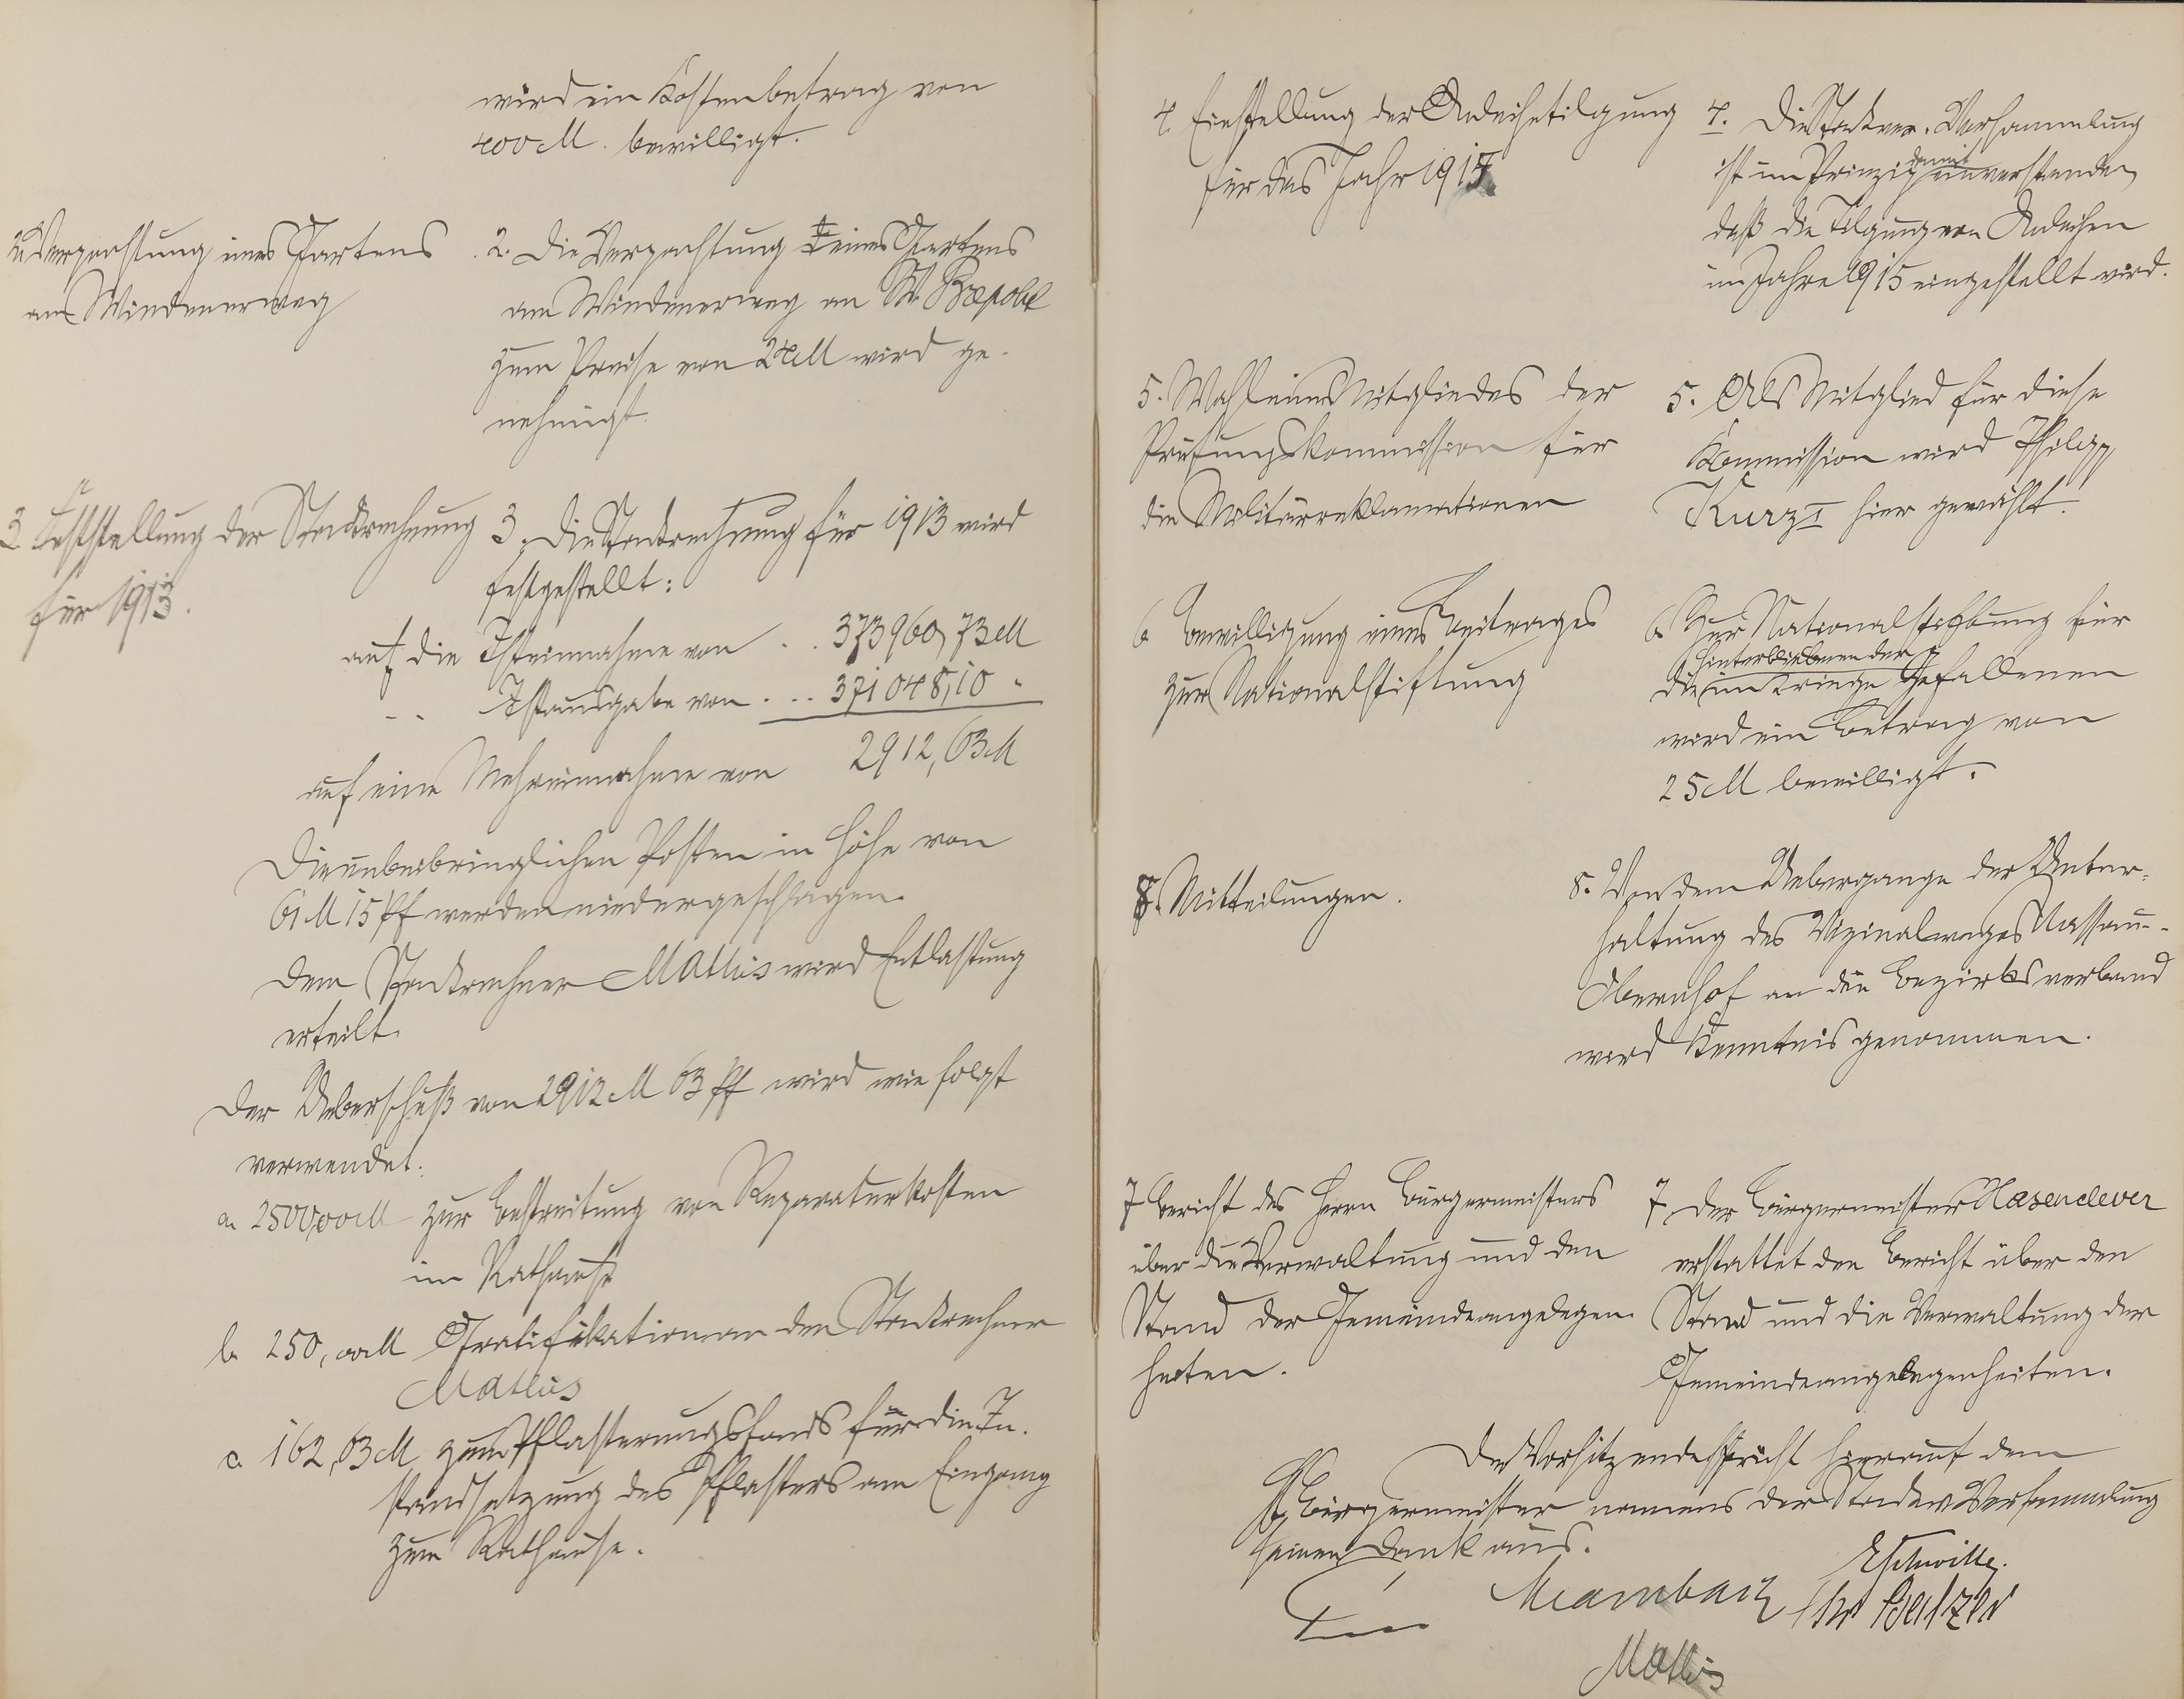 wird ein Kostenbetrag von
400 M. bewilligt.
2. Verpachtung eines Gartens
am Windenerweg
2. Die Verpachtung eines Gartens
am Windenerweg an W.
zum Preise von 24 M wird ge-
nehmigt.
3 Feststellung der Stadtrechnung
für 1913.
3. Die Stadtrechnung für 1913 wird
festgestellt:
auf die Isteinnahme von . . 373960,73 M
" " Istausgabe von . . . 371048,10 "
auf eine Mehreinnahme von 2912,63 M
Die unbeibringlichen Posten in Höhe von
61 M 15 Pf werden niedergeschlagen.
Dem Stadtrechner Mathis wird Entlastung
erteilt.
Der Ueberschuß von 2912 M 63 Pf wird wie folgt
verwendet:
a. 2500,00 M zur Bestreitung von Reparaturkosten
im Rathause
b. 250,00 M Gratifikation an den Stadtrechner
Mathis
c. 162,63 M zum Pflasterungsfonds für die In-
standsetzung des Pflasters am Eingang
zum Rathause.
4. Einstellung der Anleihetilgung
für das Jahr 1915
4. Die Stadtver. Versammlung
ist im Prinzip damit einverstanden,
daß die Tilgung von Anleihen
im Jahre 1915 eingestellt wird.
5. Wahl eines Mitgliedes der
Prüfungskommission für
die Militärreklamationen
5. Als Mitglied für diese
Kommission wird Philipp
Kurz I hier gewählt.
6 Bewilligung eines Beitrages
zur Nationalstiftung
6. Zur Nationalstiftung für
die Hinterbliebenen der im Kriege Gefallenen
wird ein Betrag von
25 M bewilligt.
8. Mitteilungen.
8. Von dem Uebergange der Unter-
haltung des Vizinalweges Nassau-
Obernhof an den Bezirksverband
wird Kenntnis genommen.
7 Bericht des Herrn Bürgermeisters
über die Verwaltung und den
Stand der Gemeindeangelegen-
heiten.
7 Der Bürgermeister Hasenclever
erstattet den Bericht über den
Stand und die Verwaltung der
Gemeindeangelegenheiten.
Der Vorsitzende spricht hierauf dem
Bürgermeister namens der Stadtv. Versammlung
seinen Dank aus.
Mathis